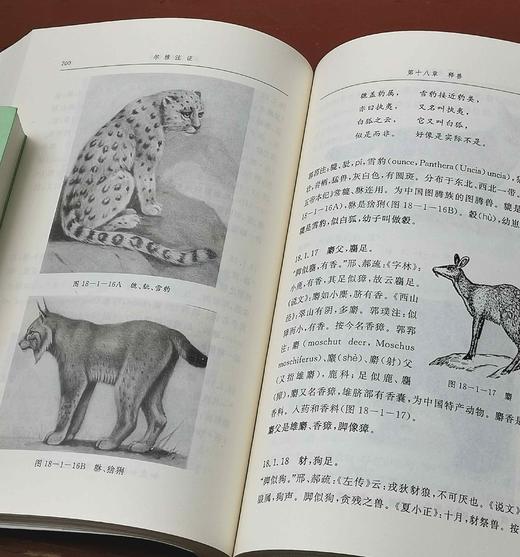 700
尔雅注证
图18-1-16A 貔、豼、雪豹
图18-1-16B 貅、猞猁
第十八章 释兽
貔盖豹属, 雪豹接近豹类,
亦曰执夷。 又名叫执夷。
白狐之云, 它又叫白狐,
似是而非。 好像是实际不是。
郭郝注:貔,豼,pí,雪豹(ounce,Panthera(Uncia)uncia),猫
科,岩栖,猛兽,灰白色,有圆斑。分布于东北、西北一带。
帝本纪》常貔、貅连用。为中国图腾族的图腾兽。貔是
18-1-16A),貅是猞猁(图18-1-16B)。縠(hù),幼崽
貔是雪豹,似白狐,幼子叫做縠。
18.1.17 麝父,麕足。
“脚似麕,有香。”邢、郝疏:《字林》:
小鹿,有香,其足似獐,故云麕足。
《说文》:麝如小麋,脐有香。《西山
经》:翠山有阴,多麝。郭璞注:似
獐而小,有香。按今名香獐。郭郛
注:麝(moschut deer, Moschus
moschiferus)、麝(shè)、麝(射)父
(又指雄麝),鹿科;足似鹿、麕
(獐),麝又名香獐,雄脐部有香囊,为中国特产动物。麝香是
香料。入药和香料(图18-1-17)。
麝父是雄麝、香獐,脚像獐。
图18-1-17 麝
18.1.18 豺,狗足。
“脚似狗。”邢、郝疏:《左传》云:戎狄豺狼,不可厌也。《说文》
狼属,狗声。脚似狗,贪残之兽。《夏小正》:十月,豺祭兽。